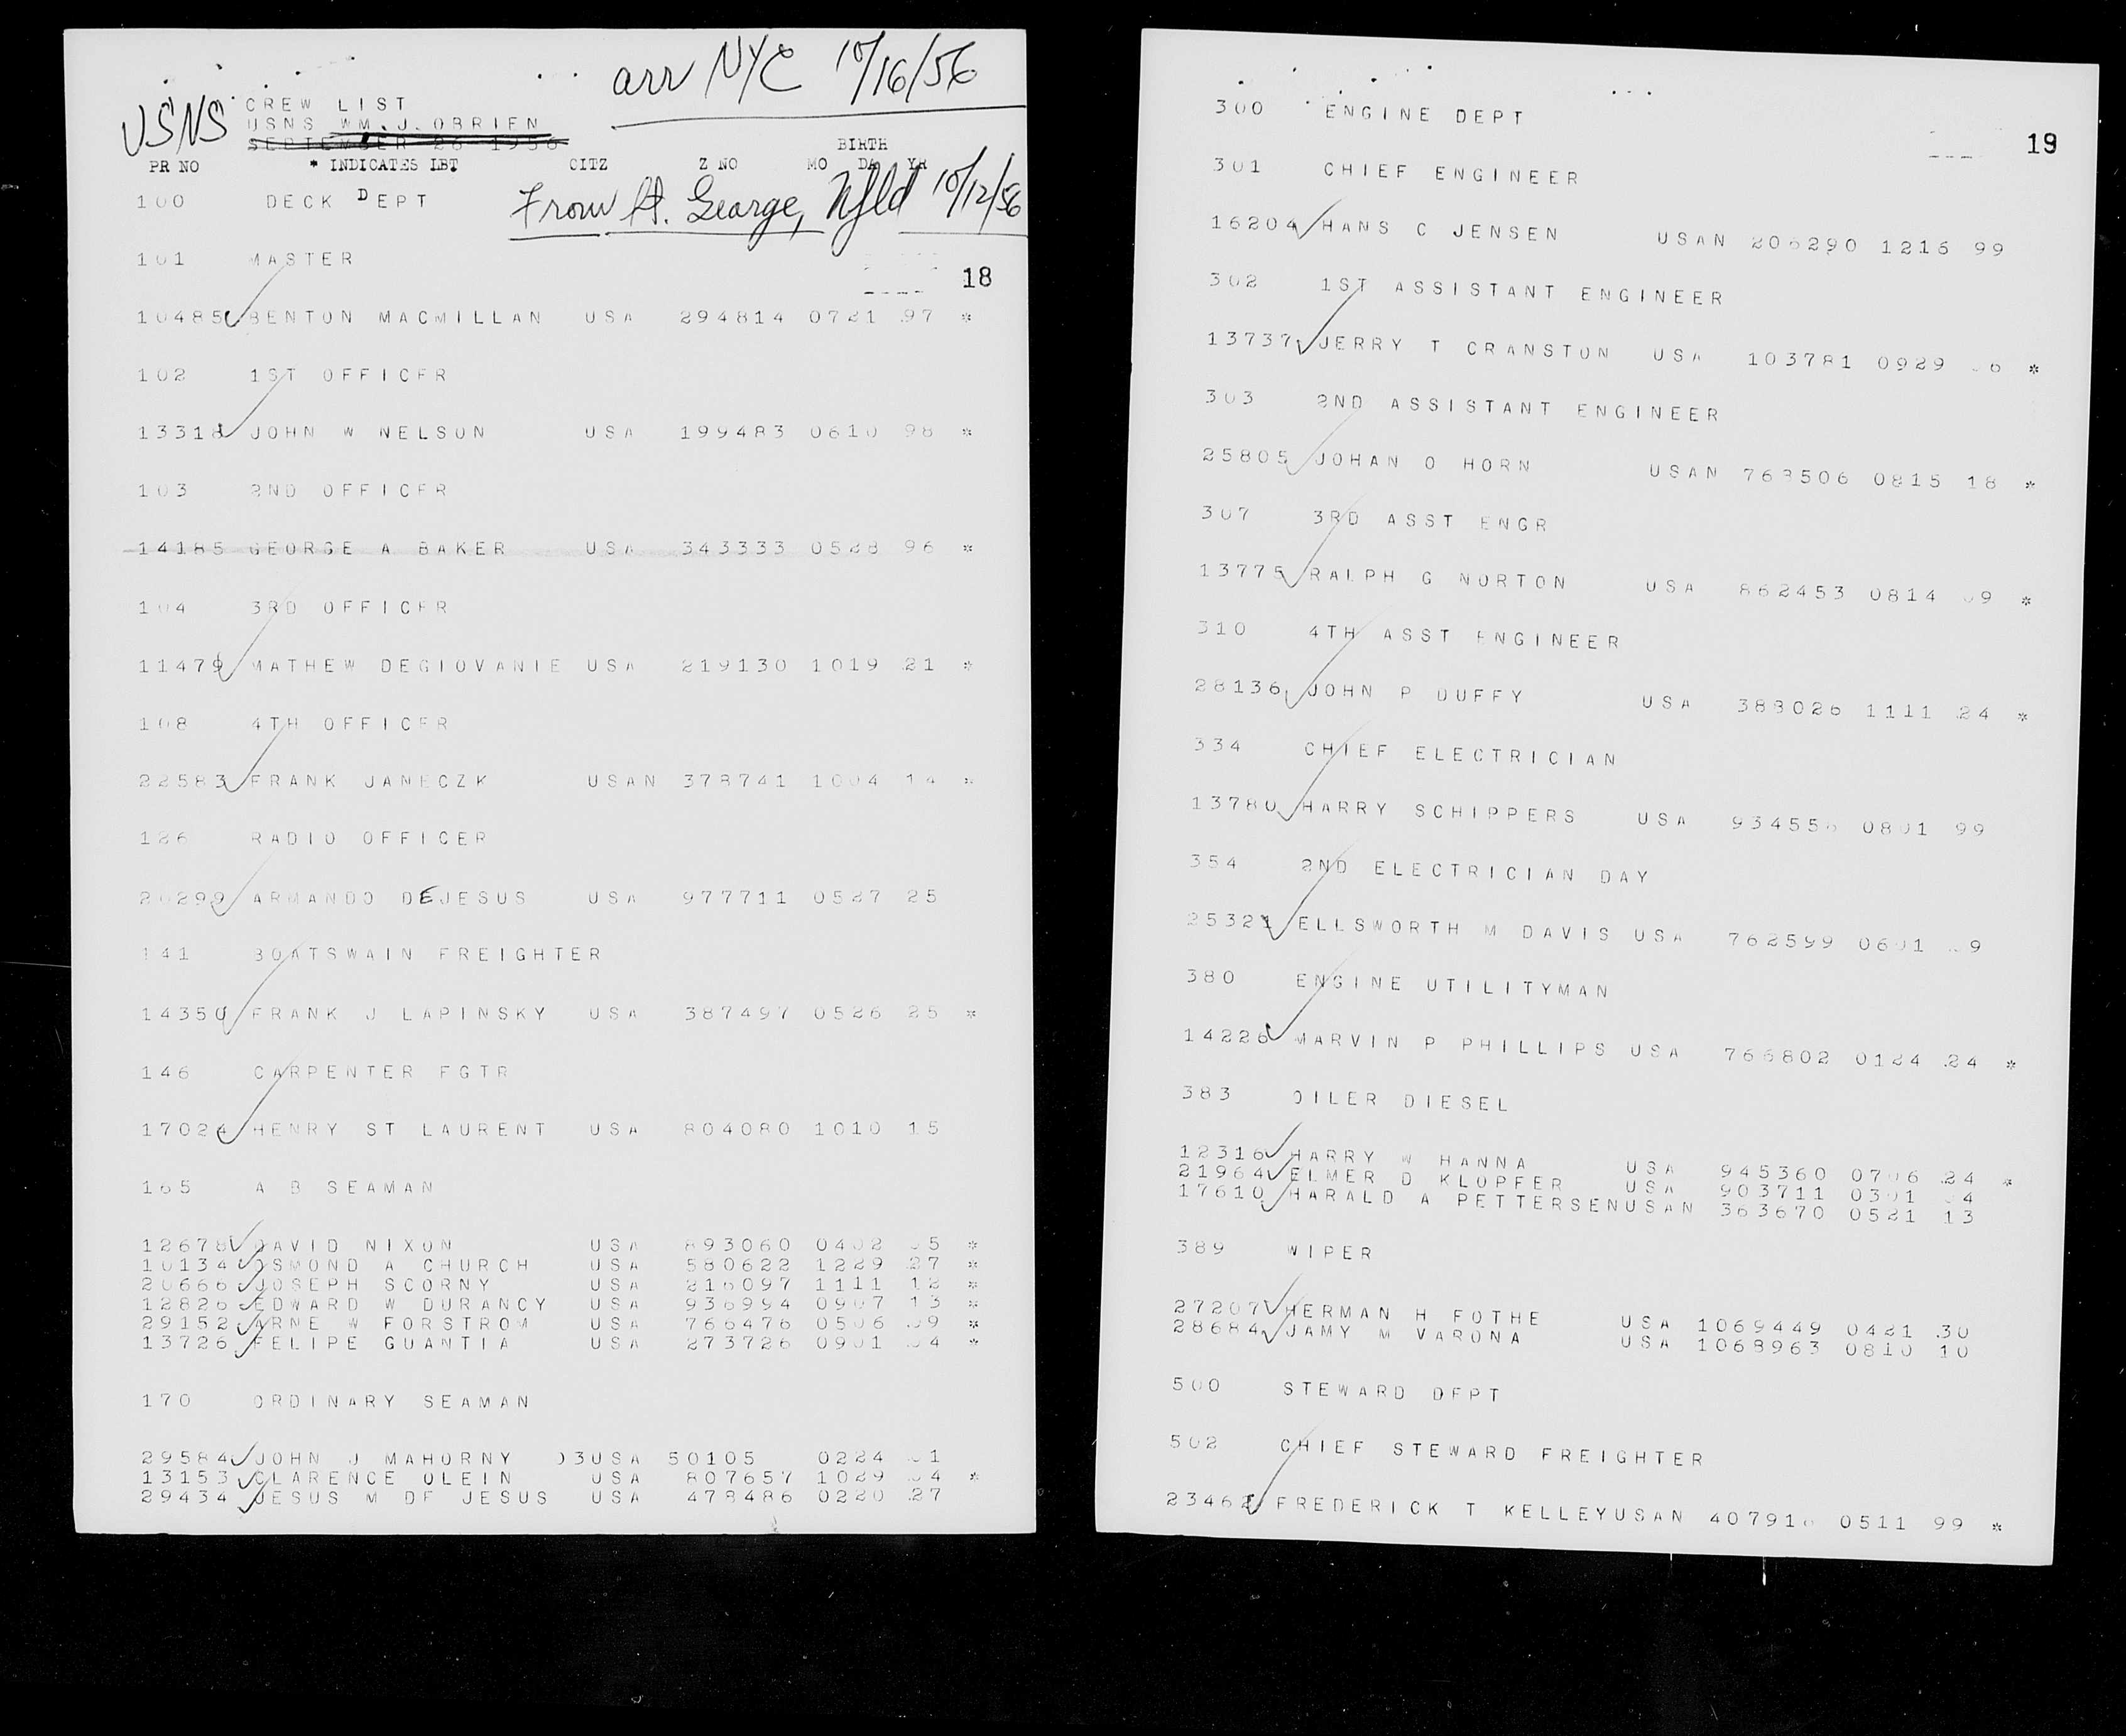 arr NYC 10/16/56
USNS
CREW LIST
USNS WM.J.OBRIEN
SEPTEMBER 26 1956
BIRTH
PR NO * INDICATES LBT CITZ Z NO MO DA YR
100 DECK DEPT
From St. George, Nfld 10/12/56
101 MASTER
18
10485 BENTON MACMILLAN USA 294814 0721 97 *
102 1ST OFFICER
13318 JOHN W NELSON USA 199483 0610 98 *
103 2ND OFFICER
14185 GEORGE A BAKER USA 343333 0528 96 *
104 3RD OFFICER
11479 MATHEW DEGIOVANIE USA 219130 1019 21 *
108 4TH OFFICER
22583 FRANK JANECZK USAN 378741 1004 14 *
126 RADIO OFFICER
20299 ARMANDO DEJESUS USA 977711 0527 25
141 BOATSWAIN FREIGHTER
14350 FRANK J LAPINSKY USA 387497 0526 25 *
146 CARPENTER FGTR
17024 HENRY ST LAURENT USA 804080 1010 15
165 A B SEAMAN
12678 DAVID NIXON USA 893060 0402 05 *
10134 OSMOND A CHURCH USA 580622 1229 27 *
20666 JOSEPH SCORNY USA 216097 1111 12 *
12826 EDWARD W DURANCY USA 936994 0907 13 *
29152 ARNE W FORSTROM USA 766476 0506 09 *
13726 FELIPE GUANTIA USA 273726 0901 04 *
170 ORDINARY SEAMAN
29584 JOHN J MAHORNY USA 50105 0224 01
13153 CLARENCE OLEIN USA 807657 1029 04 *
29434 JESUS M DE JESUS USA 478486 0220 27
300 ENGINE DEPT
19
301 CHIEF ENGINEER
16204 HANS C JENSEN USAN 206290 1216 99
302 1ST ASSISTANT ENGINEER
13737 JERRY T CRANSTON USA 103781 0929 06 *
303 2ND ASSISTANT ENGINEER
25805 JOHAN O HORN USAN 763506 0815 18 *
307 3RD ASST ENGR
13775 RALPH G NORTON USA 862453 0814 09 *
310 4TH ASST ENGINEER
28136 JOHN P DUFFY USA 388026 1111 24 *
334 CHIEF ELECTRICIAN
13780 HARRY SCHIPPERS USA 934556 0801 99
354 2ND ELECTRICIAN DAY
25321 ELLSWORTH M DAVIS USA 762599 0601 09
380 ENGINE UTILITYMAN
14226 MARVIN P PHILLIPS USA 766802 0124 24 *
383 OILER DIESEL
12316 HARRY W HANNA USA 945360 0706 24 *
21964 ELMER D KLOPFER USA 903711 0301 04
17610 HARALD A PETTERSENUSAN 363670 0521 13
389 WIPER
27207 HERMAN H FOTHE USA 1069449 0421 30
28684 JAMY M VARONA USA 1068963 0810 10
500 STEWARD DEPT
502 CHIEF STEWARD FREIGHTER
23462 FREDERICK T KELLEYUSAN 407916 0511 99 *